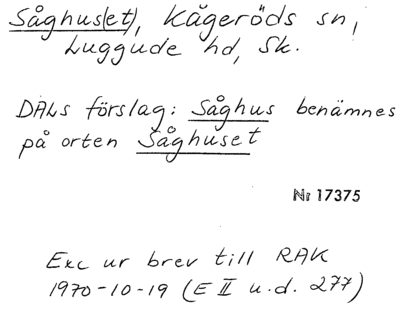 Såghus(et), Kågeröds sn,
Luggude hd, Sk.
DALs förslag: Såghus benämnes
på orten Såghuset
Nr 17375
Exc ur brev till RAK
1970-10-19 (E II u.d. 277)